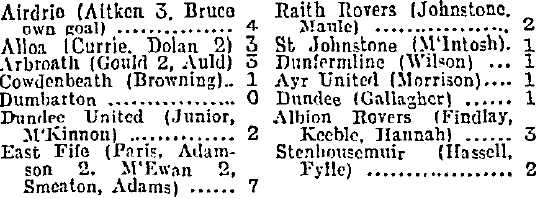 Airdrie (Aitken 3, Bruce
own goal) ................ 4
Alloa (Currie, Dolan 2) 3
Arbroath (Gould 2, Auld) 3
Cowdenbeath (Browning).. 1
Dumbarton ................ 0
Dundee United (Junior,
M'Kinnon) ............. 2
East Fife (Paris, Adam-
son 2, M'Ewan 2,
Smeaton, Adams) ...... 7
Raith Rovers (Johnstone,
Maule) ................. 2
St Johnstone (M'Intosh). 1
Dunfermline (Wilson) ... 1
Ayr United (Morrison).... 1
Dundee (Gallagher) ...... 1
Albion Rovers (Findlay,
Keeble, Hannah) ...... 3
Stenhousemuir (Hassell,
Fyffe) .................. 2